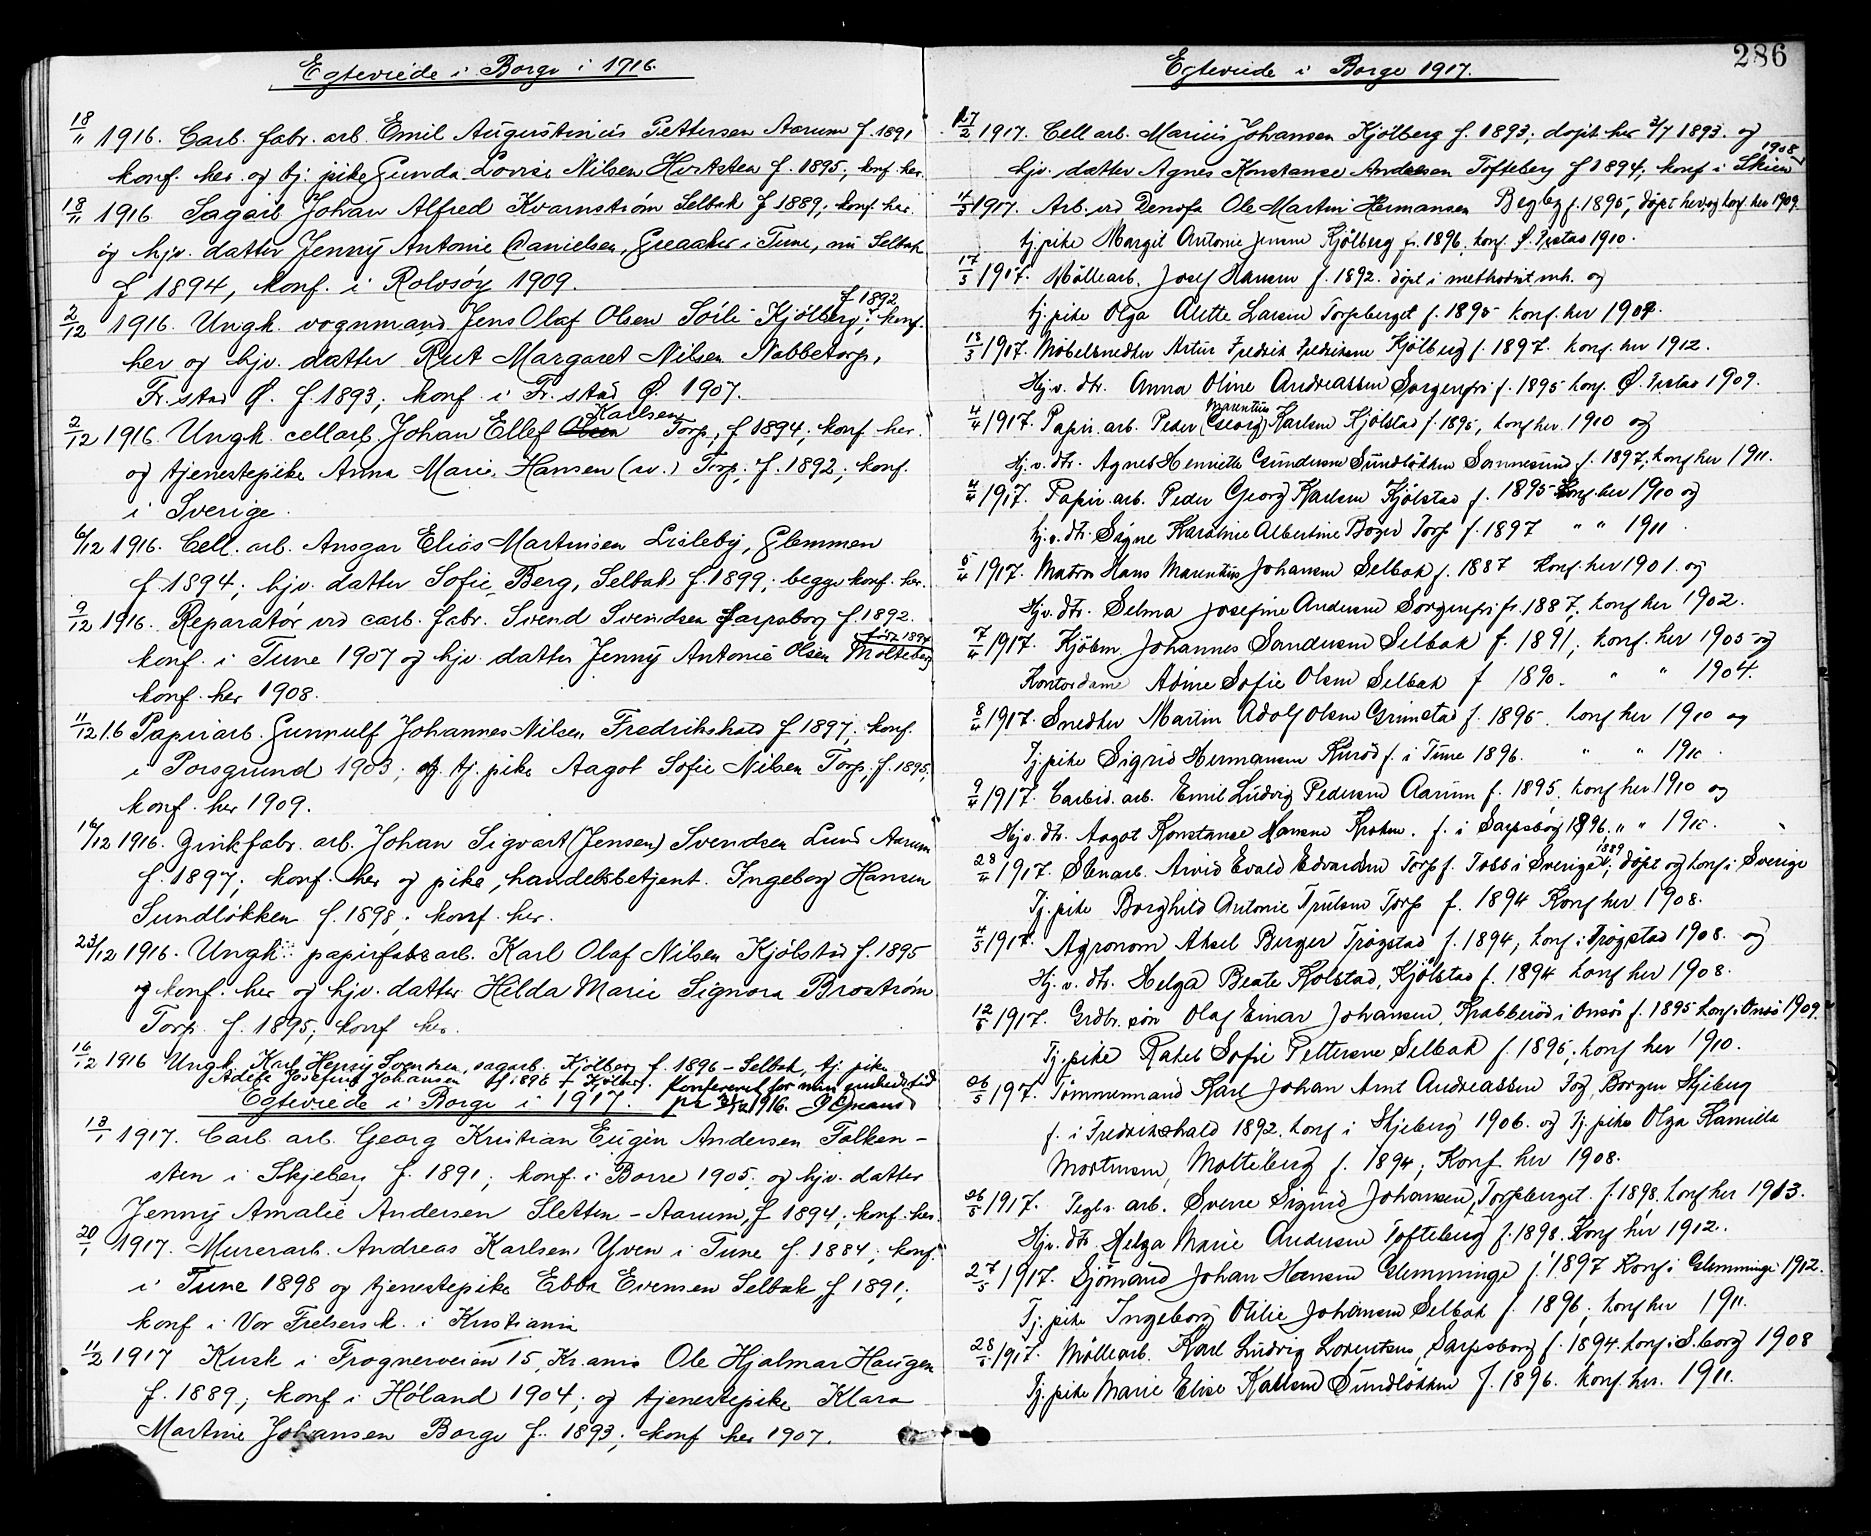 Egteviede i Borge i 1916.
18/11 1916. Carb. fabr. arb. Emil Augustinius Pettersen Aarum f. 1891
konf. her og tj. pike Gunda Lovise Nilsen Hvitsten f. 1895; konf. her.
18/11 1916 Sagarb. Johan Alfred Kvarnstrøm Selbak f 1889; konf. her.
og hjv. datter Jenny Antonie Danielsen, Greaaker i Tune, nu Selbak
f 1894, konf. i Rolvsøy 1909.
2/12 1916. Ungk. vognmand Jens Olaf Olsen Sôili Kjölberg, f 1892, konf.
her og hjv. datter Rut Margaret Nilsen Nabbetorp,
Fr.stad Ø. f. 1893; konf. i Fr.stad Ø. 1907.
2/12 1916 Ungk. cellarb. Johan Ellef Karlsen Torp, f 1894; konf. her.
og tjenestepike Anna Marie Hansen (sv.) Torp, f. 1892; konf.
i Sverige.
6/12 1916. Cell. arb. Ansgar Elias Martinsen Lisleby, Glemmen
f 1894; hjv. datter Sofie Berg, Selbak f. 1899; begge konf. her.
9/12 1916. Reparatør ved carb. fabr. Svend Svendsen Sarpsborg f. 1892.
konf. i Tune 1907 og hjv. datter Jenny Antonie Olsen Molteberg
konf. her 1908.
11/12 16 Papirarb. Gunnulf Johannes Nilsen Fredrikshald f 1897; konf.
i Porsgrund 1903; og tj. pike Aagot Sofie Nilsen Torp, f. 1895;
konf. her 1909.
16/12 1916. Zinkfabr. arb. Johan Sigvart (Jensen) Svendsen Lund Aarum
f. 1897; konf. her og pike, handelsbetjent. Ingeborg Hansen
Sundløkken f. 1898; konf. her.
23/12 1916. Ungk. papirfabr arb. Karl Olaf Nilsen Kjölstad f. 1895
konf. her og hjv. datter Hilda Marie Signora Broström
Torp. f. 1895; konf her.
16/12 1916 Ungk. Karl Henry Svendsen, sagarb. Kjölberg f. 1896 – Selbak, tj. pike
Adele Josefine Johansen f 1896 Kjölberg. Konfereret for min embedstid
Egteviede i Borge i 1917. pr 31/12 1916.
13/1 1917. Carb. arb. Georg Kristian Eugin Andersen Folken-
sten i Skjeberg f. 1891; konf. i Borre 1905; og hjv. datter
Jenny Amalie Andersen Sletten – Aarum, f 1894; konf. her.
20/1 1917. Murerarb. Andreas Karlsen Yven i Tune f. 1884; konf.
i Tune 1898 og tjenestepike Ebba Evensen Selbak f 1891;
konf i Vor Frelsers k. i Kristiania
11/2 1917 Kusk i Frognerveien 15, Kr.ania Ole Hjalmar Haugen
f. 1889; konf i Høland 1904; og tjenestepike Klara
Martine Johansen Borge f. 1893; konf her 1907.
286
Egteviede i Borge 1917.
17/2 1917. Cell arb. Marius Johansen Kjölberg f. 1893; döpt her 2/7 1893. og
hjv. datter Agnes Konstanse Andersen Tofteberg f 1894; konf i Skien 1908
4/3 1917. Arb. ved Denofa Ole Martin Hermansen Begby f. 1895, döpt her, og konf. her 1909.
tj. pike Margit Antonie Jensen Kjölberg f. 1896, konf. Ø. Frstad 1910.
17/3 1917. Möllearb. Josef Hansen f. 1892. döpt i methodistmh. og
tj. pike Olga Alette Larsen Torpberget f. 1895 konf. her 1909.
18/3 1917. Møbelsnedker Artur Fredrik Fredriksen Kjölberg f. 1897. konf. her 1912.
Hj. v. dtr. Anna Oline Andreassen Sorgenfri f. 1895 konf. Ø. Frstad 1909.
4/4 1917. Papir. arb. Peder (Georg) Marentius Karlsen Kjölstad f. 1895, konf her. 1910 og
Hj. v. dtr. Agnes Henriette Gundersen Sundløkken Sannesund f. 1897; konf her 1911.
4/4 1917. Papir. arb. Peder Georg Karlsen Kjölstad f. 1895 konf her 1910 og
hj. v. dtr. Signe Karoline Albertine Torp f. 1897 " " 1911.
5/4 1917. Matros Hans Marentius Johansen Selbak f. 1887 konf. her 1901. og
Hjv. dtr. Selma Josefine Andersen Sorgenfri f. 1887, konf her 1902.
7/4 1917. Kjöbm. Johannes Sandersen Selbak f. 1891; konf. her 1905 og
Kontordame Adine Sofie Olsen Selbak f 1890. " " 1904.
8/4 1917. Snedker Martin Adolf Olsen Grimstad f. 1895. konf her 1910 og
Tj. pike Sigrid Hermansen Kurød f. i Tune 1896. " " 1910.
9/4 1917. Carbid. arb. Emil Ludvig Pedersen Aarum f. 1895, konf her 1910 og
Hjv. dtr. Aagot Konstanse Hansen Kroken. f. i Sarpsborg 1896. " " 1910.
28/4 1917. Stenarb. Arvid Evald Edvardsen Torp f. Tobb i Sverige 1889; döpt og konf i Sverige
Tj. pike Borghild Antonie Trulsen Torp f. 1894 Konf her 1908.
4/5 1917. Agronom Aksel Berger Trøgstad f. 1894, konf. i Trøgstad 1908. og
Hj. v. dtr. Helga Beate Kolstad, Kjölstad f. 1894 konf her 1908.
12/5 1917. Grdbr. søn Olaf Einar Johansen, Krabberød i Onsø f. 1895 konf. i Onsø 1909.
Tj. pike Rakel Sofie Pettersen Selbak f. 1895; konf her 1910.
26/5 1917. Tömmermand Karl Johan Arnt Andreassen Borgen Skjeberg
f. i Fredrikshald 1892. konf i Skjeberg 1906. og Tj. pike Olga Kamilla
Mortensen, Molteberg f. 1894; Konf her 1908.
26/5 1917. Teglv. arb. Sverre Sigurd Johansen, Torpberget. f. 1898. konf her 1913.
Hjv. dtr. Helga Marie Andersen Tofteberg f. 1898. Konf her 1912.
27/5 1917. Sjömand Johan Hansen Glemminge f. 1897 Konf i Glemminge 1912.
Tj. pike Ingeborg Otilie Johansen Selbak f. 1896; konf her 1911.
28/5 1917. Møllearb. Karl Ludvig Lorentsen, Sarpsborg f. 1894. konf i S.borg 1908
Tj. pike Marie Elise Karlsen Sundløkken f. 1896. konf. her. 1911.